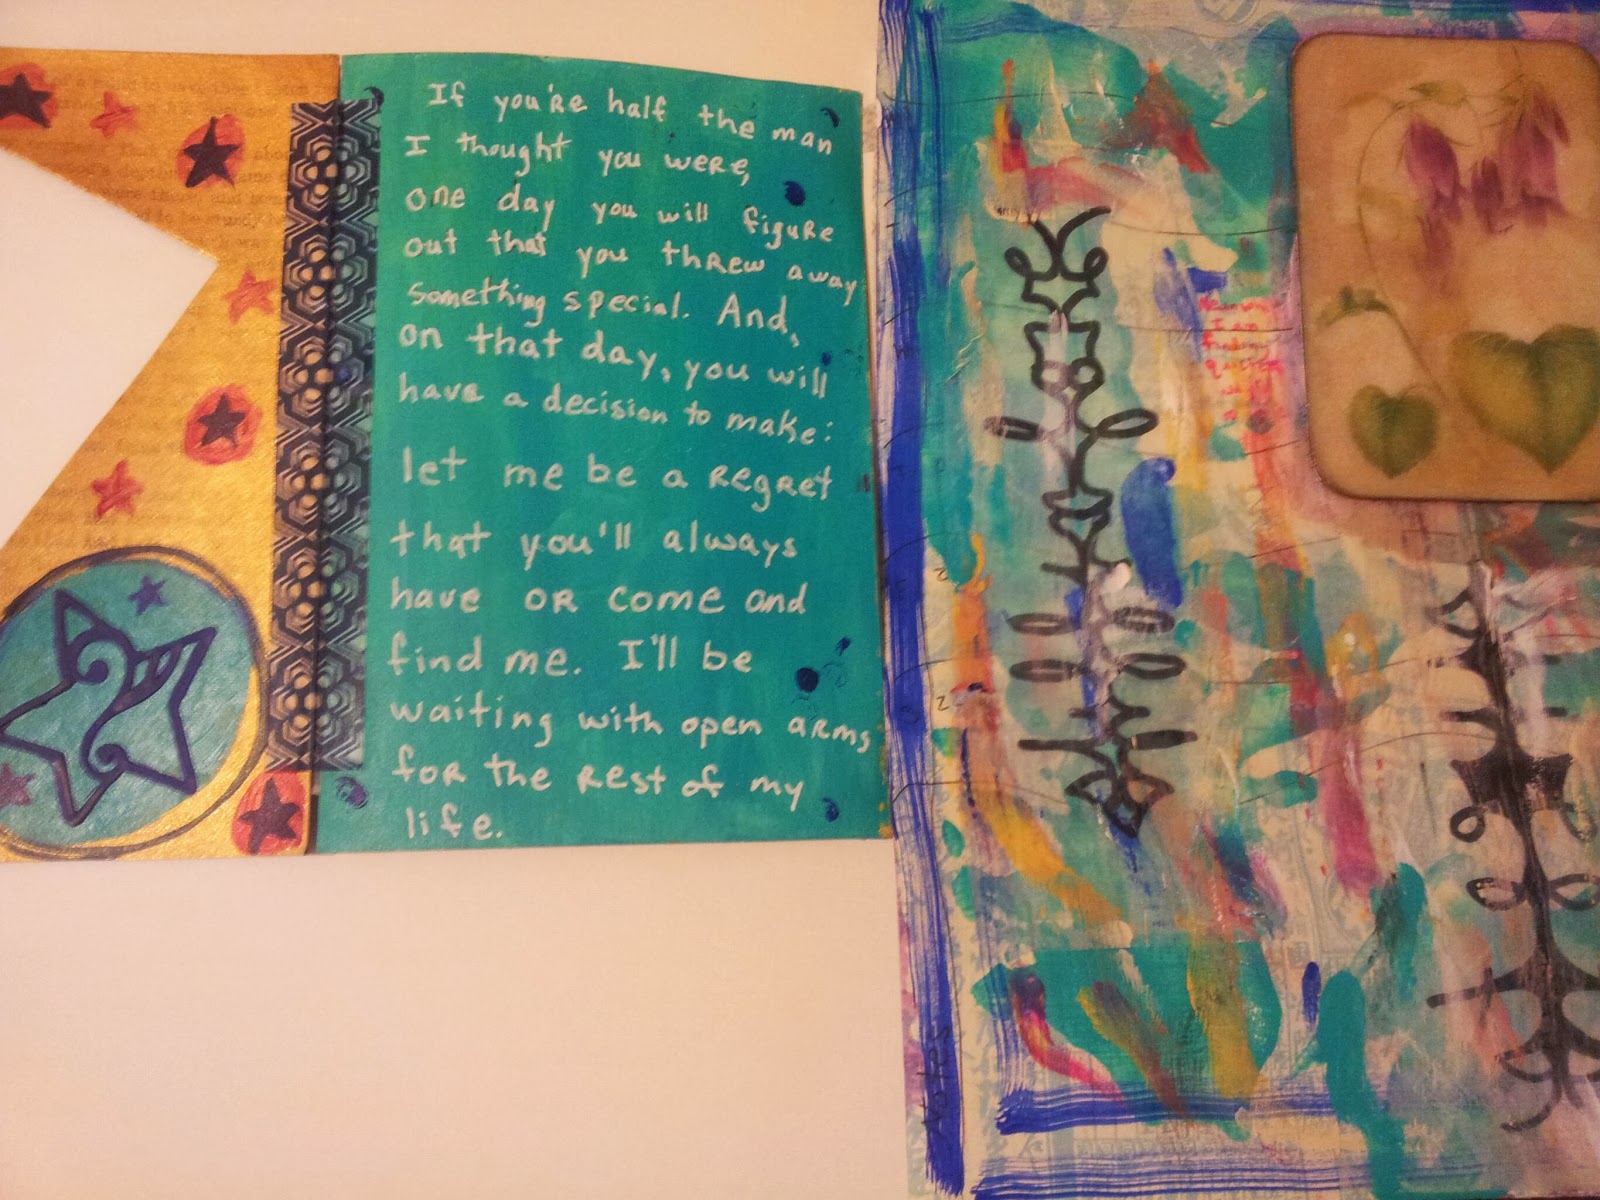 If you're half the man
I thought you were,
one day you will figure
out that you threw away
something special. And,
on that day, you will
have a decision to make:
let me be a regret
that you'll always
have or come and
find me. I'll be
waiting with open arms
for the rest of my
life.